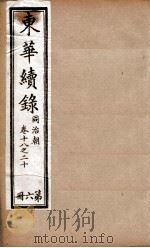 東華續錄
同治朝
卷十八之二十
第六冊